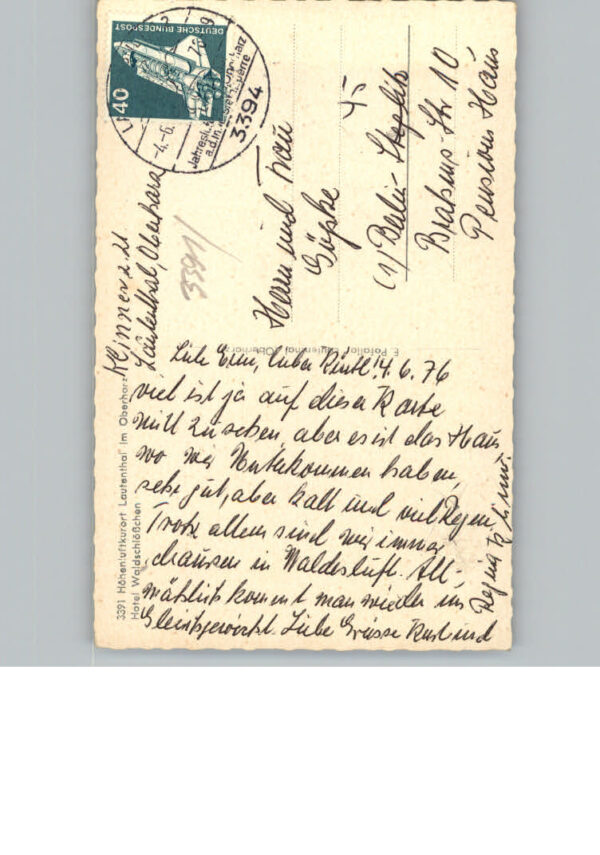 DEUTSCHE BUNDESPOST
40
3394
-4.-6.
Klinner z. Zt
Lautenthal, Oberharz
3391
Herrn und Frau
Göpke
(1) Berlin- Steglitz
45
Brahms-Str 10
Pension Haus
3391 Höhenluftkurort Lautenthal im Oberharz
Hotel Waldschlößchen
Lautenthal/Oberharz
Liebe lieber 4.6.76
viel ist ja auf dieser Karte
nicht zu sehen, aber es ist das Haus
wo wir Unterkommen haben,
sehr gut, aber kalt und viel Regen,
Trotz allem sind wir immer
draussen in Waldesluft. All-
mählich kommt man wieder ins
Gleichgewicht. Liebe Grüsse Karl und